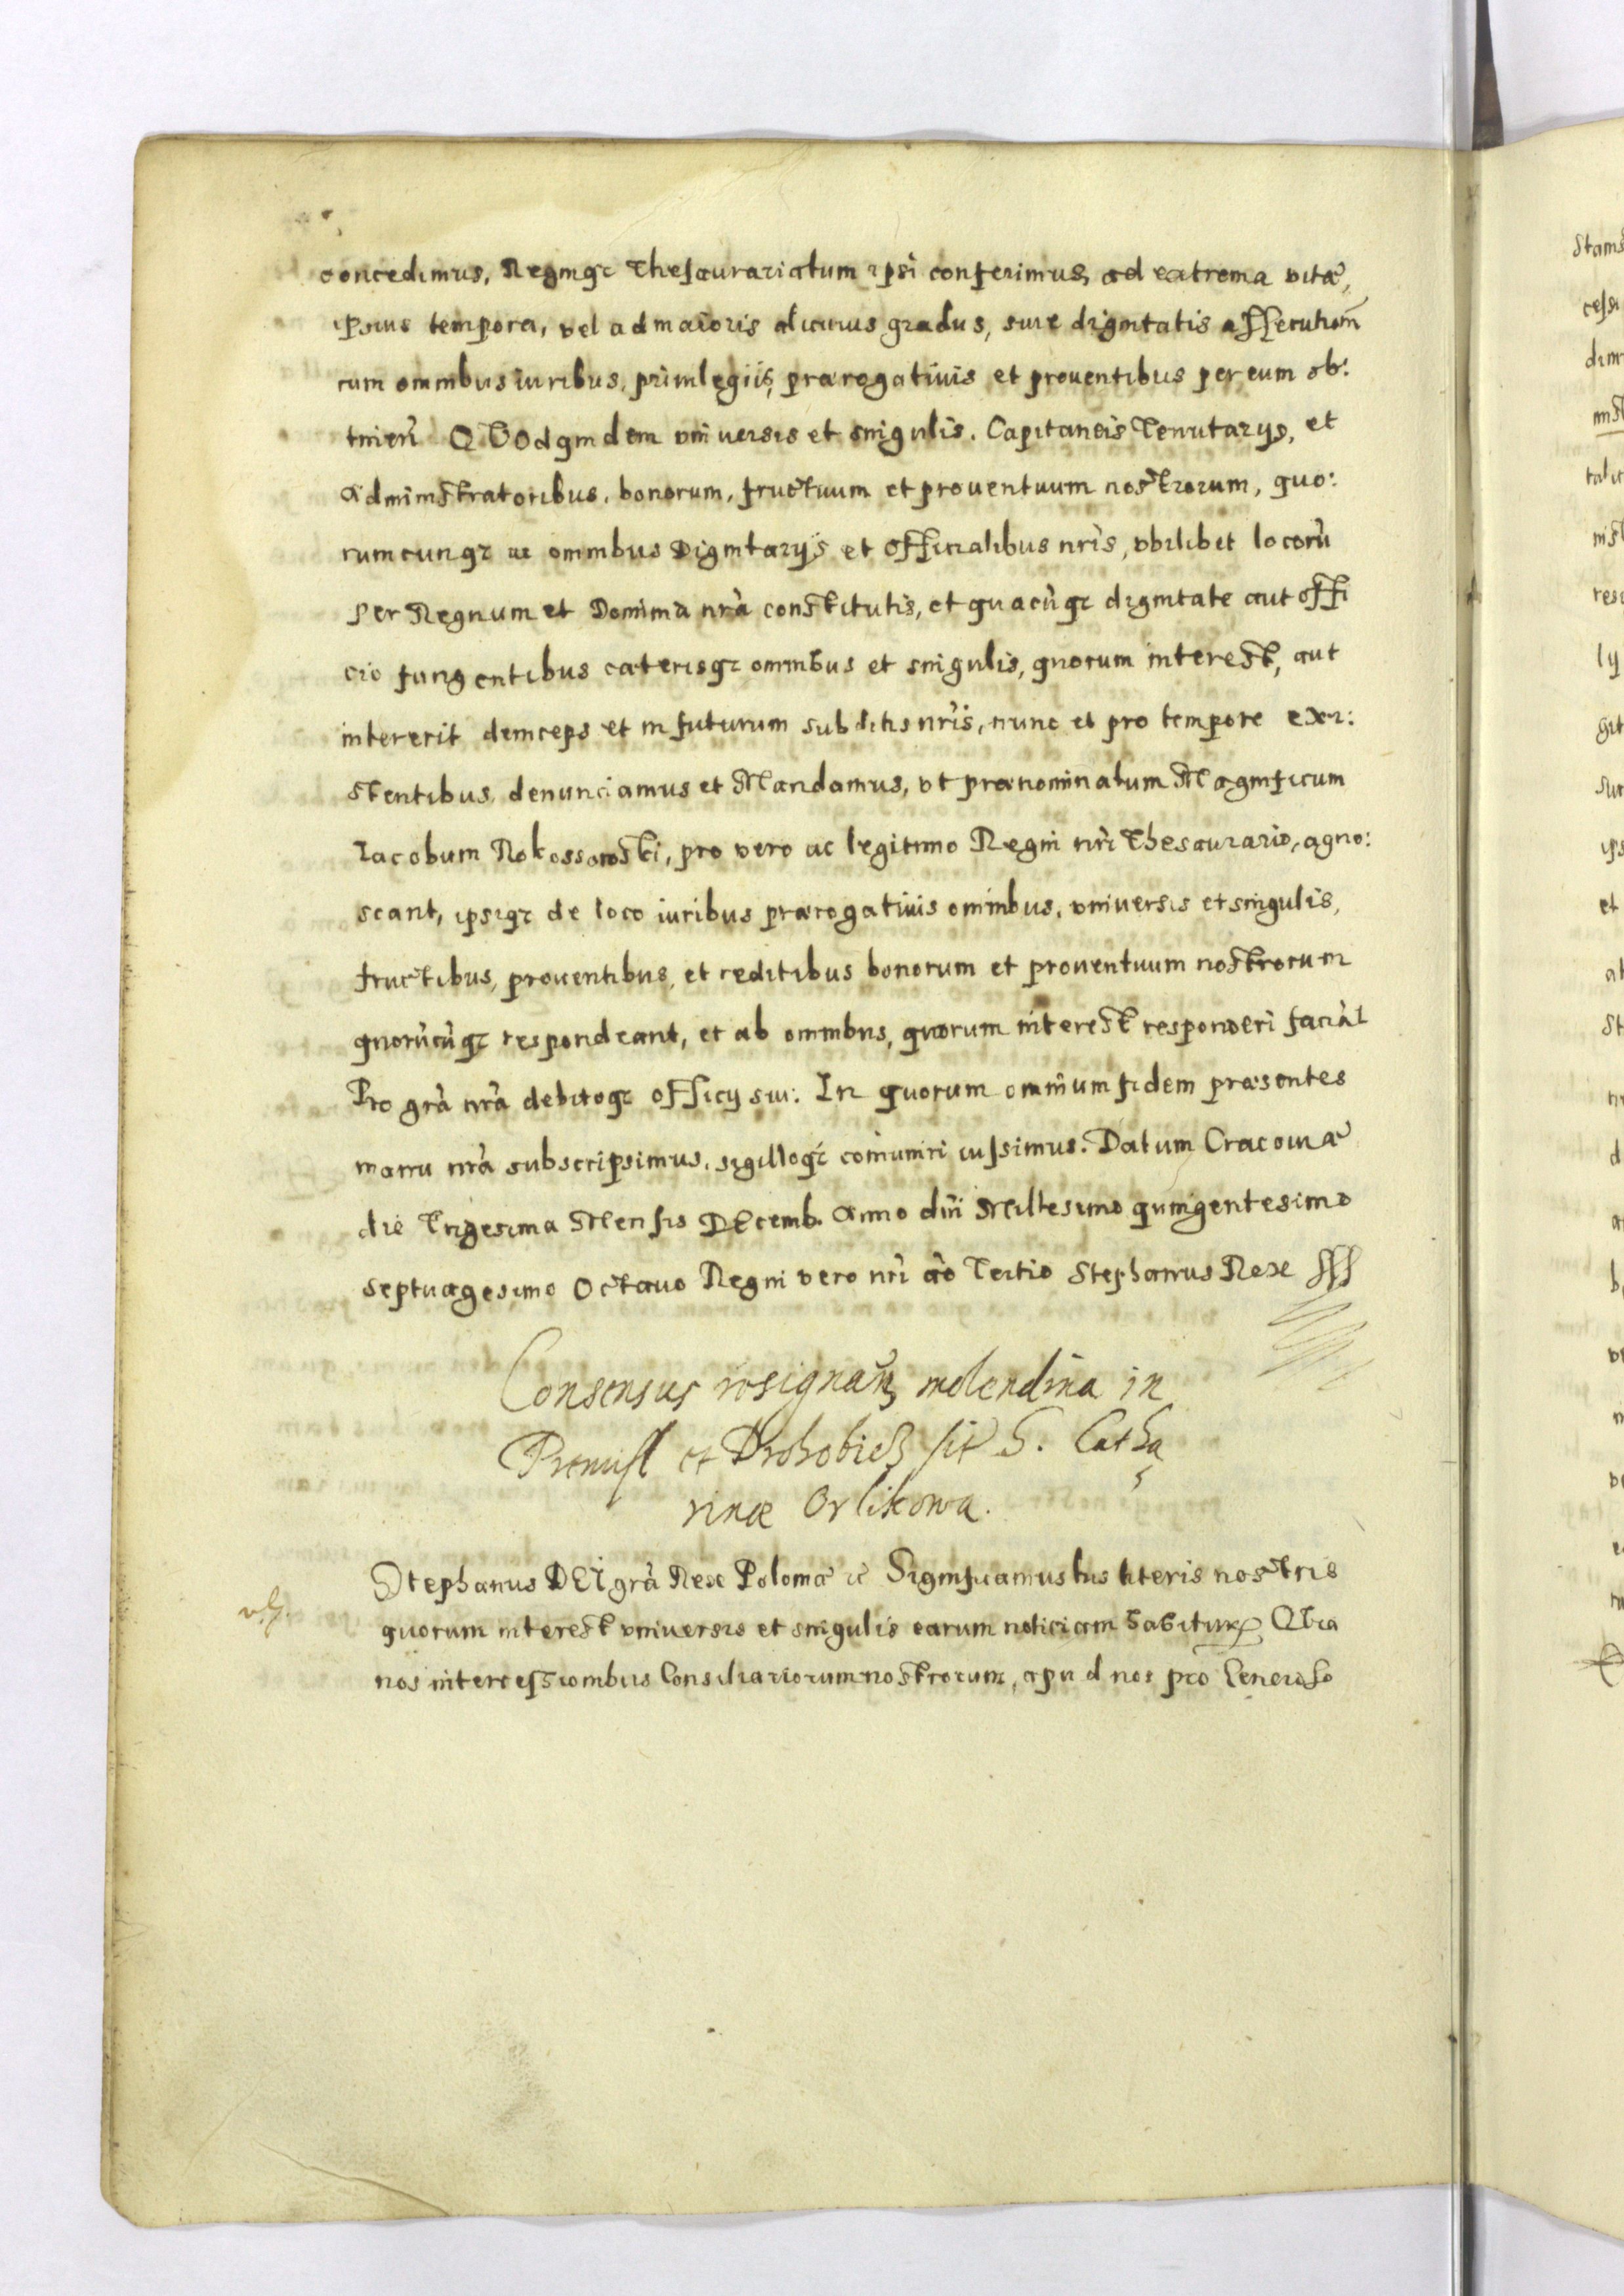 concedimus, Regniqꝫ Thesaurariatum ipsi conferimus, ad extrema vitæ,
ipsius tempora, vel ad maioris alicuius gradus, siue dignitatis assecutionẽ
cum omnibus iuribus, priuilegiis, prærogatiuis et prouentibus per eum ob:
tineñ QVOd quidem vniuersis et singulis. Capitaneis Tenutarijs, et
administratoribus, bonorum, fructuum et prouentuum nostrorum, quo:
rumcunqꝫ ac omnibus Dignitarijs et Officialibus nr̃is, vbilibet locorũ
Per Regnum et Dominia nr̃a constitutis, et quacũqꝫ dignitate aut offi
cio fungentibus cæterisqꝫ omnibus et singulis, quorum interest, aut
intererit deinceps et in futurum subditis nr̃is, nunc et pro tempore exi:
stentibus, denunciamus et Mandamus, vt prænominatum Magnificum
Iacobum Rokossowski, pro vero ac legitimo Regni nr̃i Thesaurario, agno:
scant, ipsiqꝫ de loco iuribus prærogatiuis omnibus, vniuersis et singulis,
fructibus, prouentibus, et reditibus bonorum et prouentuum nostrorum
quorũcũqꝫ respondeant, et ab omnibus, quorum interest responderi faciãt
Pro gr̃a nr̃a debitoqꝫ officij sui: In quorum omnium fidem præsentes
manu nr̃a subscripsimus, sigilloqꝫ com̃uniri iussimus. Datum Cracouiæ
die Trigesima Mensis DEcemb. Anno dñi Millesimo quingentesimo
septuagesimo Octauo Regni vero nr̃i ão Tertio Stephanus Rex sss
Consensus molendina in
Premisl et Drohobicz G. Catha
rinæ Orlikowa.
Stephanus DEI gr̃a Rex Poloniæ ꝛc Significamus his literis nostris
quorum interest vniuersis et singulis earum noticiam habituꝝ QVia
nos intercessionibus Consiliariorum nostrorum, apud nos pro Generoso